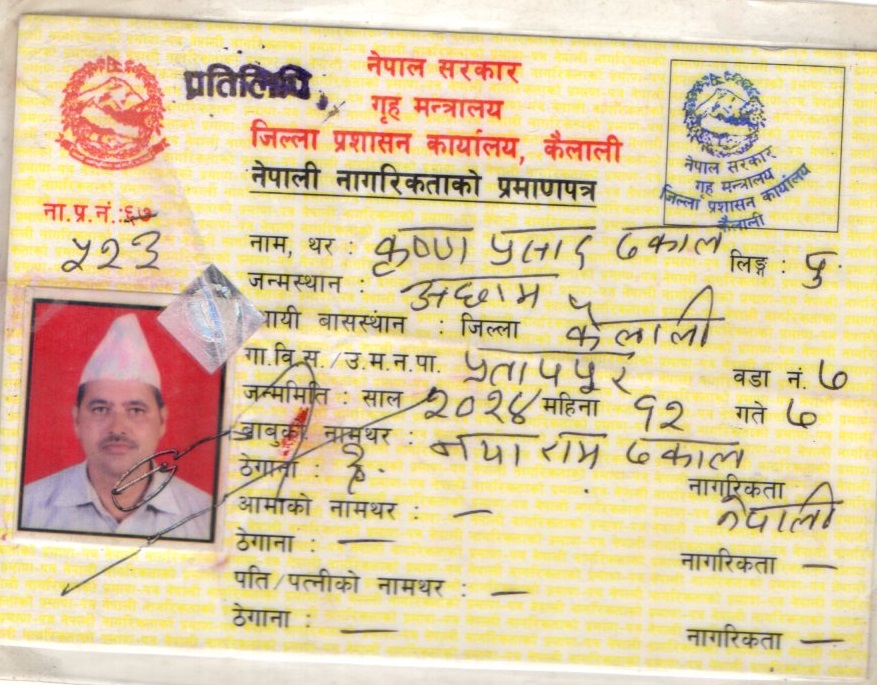 प्रतिलिपि
नेपाल सरकार
गृह मन्त्रालय
जिल्ला प्रशासन कार्यालय, कैलाली
नेपाली नागरिकताको प्रमाणपत्र
नेपाल सरकार
गृह मन्त्रालय
जिल्ला प्रशासन कार्यालय
कैलाली
ना.प्र.नं.:
५२३
नाम, थर : कृष्ण प्रसाद ढकाल लिङ्ग : पु.
जन्मस्थान : अछाम
थायी बासस्थान : जिल्ला कैलाली
गा.वि.स./उ.म.न.पा. प्रतापपुर वडा नं. ७
जन्ममिति : साल २०१४ महिना १२ गते ७
बाबुको नामथर : ढकाल
ठेगाना : ऐ. नागरिकता नेपाली
आमाको नामथर : —
ठेगाना : — नागरिकता —
पति/पत्नीको नामथर : —
ठेगाना : — नागरिकता —